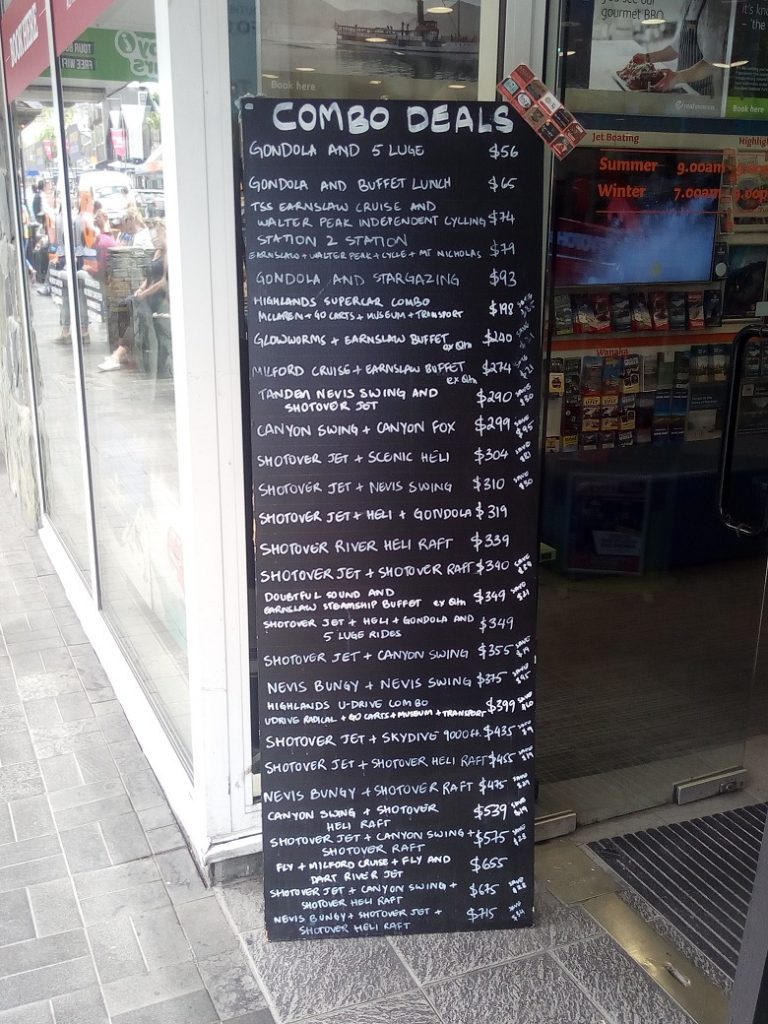 it's kn
you see our
gourmet BBQ
- 'the
Book here
Book here
TOUR
FREE WIFI
COMBO DEALS
GONDOLA AND 5 LUGE $56
GONDOLA AND BUFFET LUNCH $65
TSS EARNSLAW CRUISE AND
WALTER PEAK INDEPENDENT CYCLING $74
STATION 2 STATION
EARNSLAW + WALTER PEAK + CYCLE + MT NICHOLAS $79
GONDOLA AND STARGAZING $93
HIGHLANDS SUPERCAR COMBO
MCLAREN + GO CARTS + MUSEUM + TRANSPORT $198
GLOWWORMS + EARNSLAW BUFFET $240
ex Qtn
MILFORD CRUISE + EARNSLAW BUFFET $274
ex Qtn
TANDEM NEVIS SWING AND $290
SHOTOVER JET
CANYON SWING + CANYON FOX $299 SAVE $95
SHOTOVER JET + SCENIC HELI $304
SHOTOVER JET + NEVIS SWING $310
SHOTOVER JET + HELI + GONDOLA $319
SHOTOVER RIVER HELI RAFT $339
SHOTOVER JET + SHOTOVER RAFT $340
DOUBTFUL SOUND AND
EARNSLAW STEAMSHIP BUFFET ex Qtn $349
SHOTOVER JET + HELI + GONDOLA AND $349
5 LUGE RIDES
SHOTOVER JET + CANYON SWING $355
NEVIS BUNGY + NEVIS SWING $375
HIGHLANDS U-DRIVE COMBO $399
UDRIVE RADICAL + GO CARTS + MUSEUM + TRANSPORT
SHOTOVER JET + SKYDIVE 9000ft. $435
SHOTOVER JET + SHOTOVER HELI RAFT $455
NEVIS BUNGY + SHOTOVER RAFT $475
CANYON SWING + SHOTOVER $539
HELI RAFT
SHOTOVER JET + CANYON SWING + $575
SHOTOVER RAFT
FLY + MILFORD CRUISE + FLY AND $655
DART RIVER JET
SHOTOVER JET + CANYON SWING + $675
SHOTOVER HELI RAFT
NEVIS BUNGY + SHOTOVER JET + $715
SHOTOVER HELI RAFT
Jet Boating
Highligh
Summer 9.00am
Winter 7.00am
Wanaka